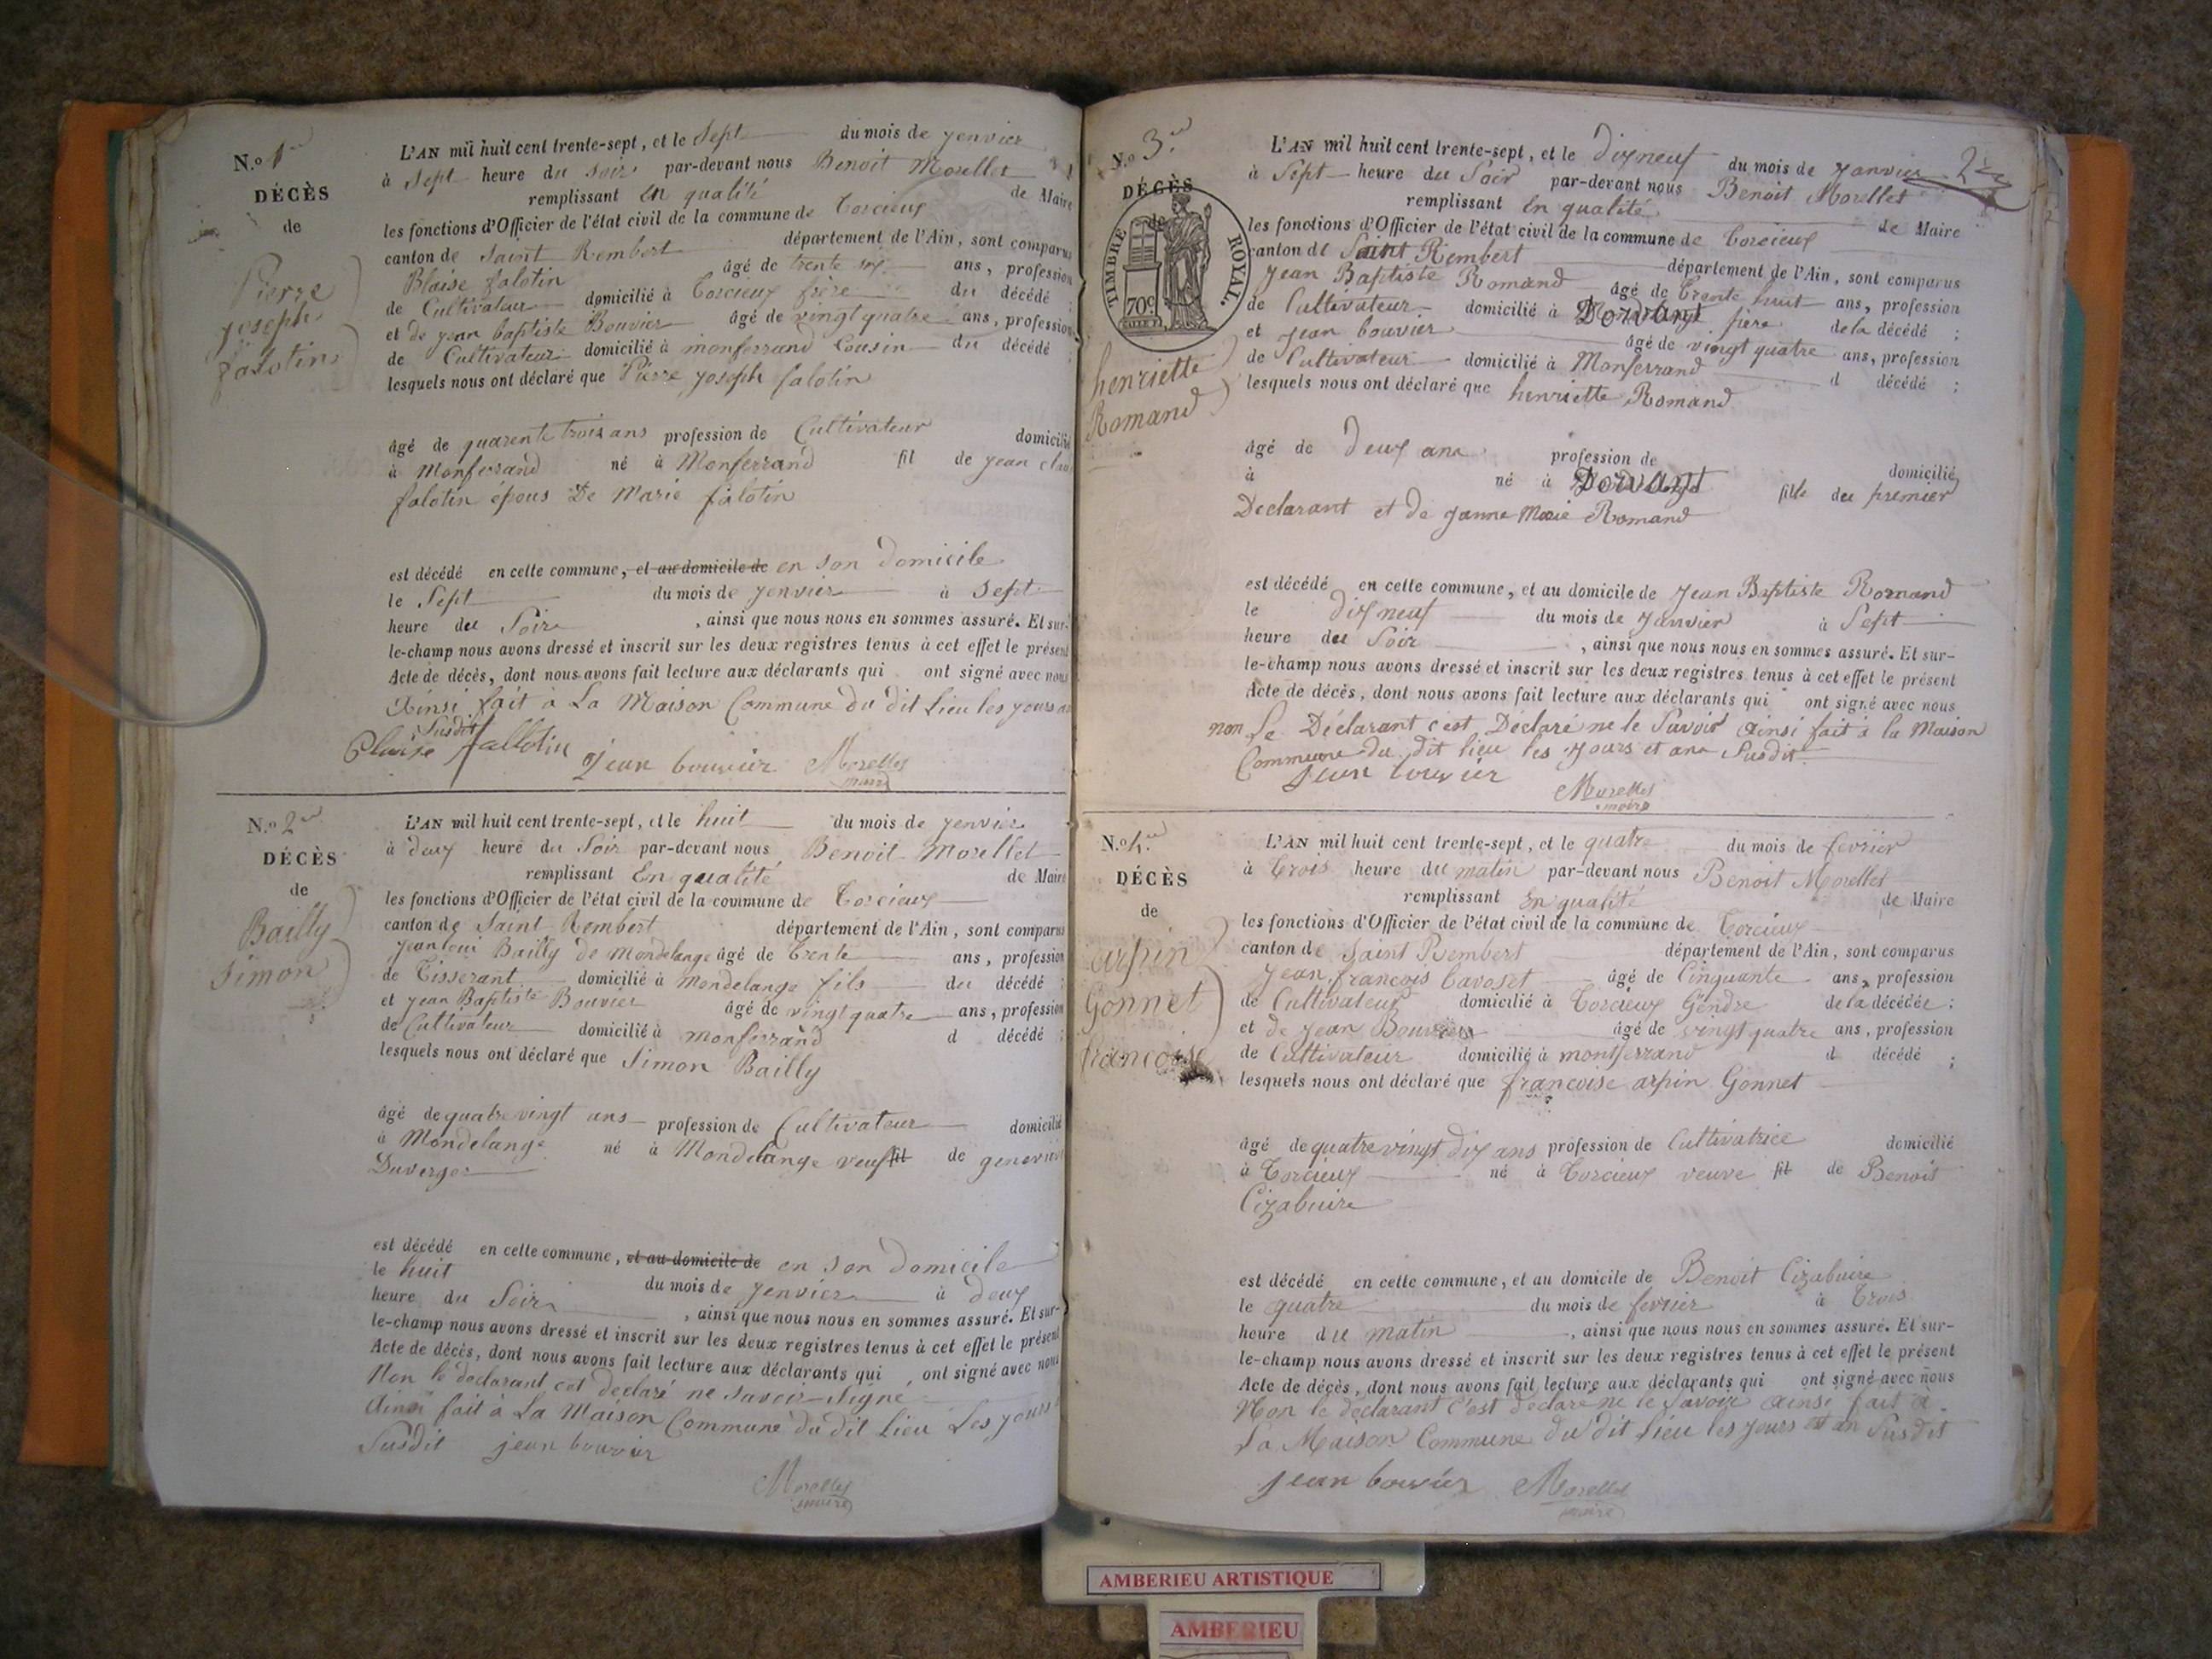 N.o 1er
DÉCÈS
de
Pierre
joseph
falotin
L'AN mil huit cent trente-sept, et le Sept du mois de jenvier
à Sept heure du soir par-devant nous Benoit Morellet
remplissant En qualité de Maire
les fonctions d'Officier de l'état civil de la commune de Torcieux
canton de Saint Rembert département de l'Ain, sont comparus
Blaise falotin âgé de trente six ans, profession
de Cultivateur domicilié à Torcieux frère du décédé ;
et de jean baptiste Bouvier âgé de vingt quatre ans, profession
de Cultivateur domicilié à monferrand Cousin du décédé ;
lesquels nous ont déclaré que Pierre joseph falotin
âgé de quarente trois ans profession de Cultivateur domicilié
à Monferrand né à Monferrand fil de jean
falotin épous De Marie falotin
est décédé en cette commune, et au domicile de en son Domicile
le Sept du mois de jenvier à Sept
heure du Soir , ainsi que nous nous en sommes assuré. Et sur-
le-champ nous avons dressé et inscrit sur les deux registres tenus à cet effet le présent
Acte de décès, dont nous avons fait lecture aux déclarants qui ont signé avec nous
Ainsi fait à La Maison Commune du dit Lieu les jours
Susdit
Blaise fallotin jean bouvier Morellet
maire
N.o 2
DÉCÈS
de
Bailly
Simon
L'AN mil huit cent trente-sept, et le huit du mois de jenvier
à deux heure du Soir par-devant nous Benoit Morellet
remplissant En qualité de Maire
les fonctions d'Officier de l'état civil de la commune de Torcieux
canton de Saint Rembert département de l'Ain, sont comparus
jean loui Bailly de Mondelange âgé de Trente ans, profession
de Tisserant domicilié à Mondelange fils du décédé ;
et jean Baptiste Bouvier âgé de vingt quatre ans, profession
de Cultivateur domicilié à monferrand d décédé ;
lesquels nous ont déclaré que Simon Bailly
âgé de quatre vingt ans profession de Cultivateur domicilié
à Mondelange né à Mondelange veuf fil de
Duverger
est décédé en cette commune, et au domicile de en son Domicile
le huit du mois de jenvier à deux
heure du Soir , ainsi que nous nous en sommes assuré. Et sur-
le-champ nous avons dressé et inscrit sur les deux registres tenus à cet effet le présent
Acte de décès, dont nous avons fait lecture aux déclarants qui ont signé avec nous
Non le declarant cet declaré ne savoir Signé
Ainsi fait à La Maison Commune du dit Lieu Les jours
Susdit jean bouvier
Morellet
maire
2
N.o 3
DÉCÈS
de
TIMBRE ROYAL.
70c
henriette
Romand
L'AN mil huit cent trente-sept, et le Dix neuf du mois de janvier
à Sept heure du Soir par-devant nous Benoit Morellet
remplissant En qualité de Maire
les fonctions d'Officier de l'état civil de la commune de Torcieux
canton de Saint Rembert département de l'Ain, sont comparus
jean Baptiste Romand âgé de Trente huit ans, profession
de Cultivateur domicilié à Dorvant père de la décédé ;
et jean bouvier âgé de vingt quatre ans, profession
de Cultivateur domicilié à Monferrand d décédé ;
lesquels nous ont déclaré que henriette Romand
âgé de Deux ans profession de domicilié
à né à Dorvant fille du premier
Declarant et de janne Marie Romand
est décédé en cette commune, et au domicile de jean Baptiste Romand
le dix neuf du mois de janvier à Sept
heure du Soir , ainsi que nous nous en sommes assuré. Et sur-
le-champ nous avons dressé et inscrit sur les deux registres tenus à cet effet le présent
Acte de décès, dont nous avons fait lecture aux déclarants qui ont signé avec nous
non Le Déclarant c'est Déclaré ne le Savoir Ainsi fait à la Maison
Commune du dit lieu les jours et ans Susdit
jean bouvier
Morellet
maire
N.o 4
DÉCÈS
de
arpin
Gonnet
francoise
L'AN mil huit cent trente-sept, et le quatre du mois de fevrier
à Trois heure du matin par-devant nous Benoit Morellet
remplissant En qualité de Maire
les fonctions d'Officier de l'état civil de la commune de Torcieux
canton de Saint Rembert département de l'Ain, sont comparus
jean francois Tavoset âgé de Cinquante ans, profession
de Cultivateur domicilié à Torcieux Gendre de la décédée ;
et de jean Bouvier âgé de vingt quatre ans, profession
de Cultivateur domicilié à montferrand d décédé ;
lesquels nous ont déclaré que francoise arpin Gonnet
âgé de quatre vingt dix ans profession de Cultivatrice domicilié
à Torcieux né à Torcieux veuve fil de Benoit
Cizabuire
est décédé en cette commune, et au domicile de Benoit Cizabuire
le quatre du mois de fevrier à Trois
heure du matin , ainsi que nous nous en sommes assuré. Et sur-
le-champ nous avons dressé et inscrit sur les deux registres tenus à cet effet le présent
Acte de décès, dont nous avons fait lecture aux déclarants qui ont signé avec nous
Non le declarant C'est declaré ne le Savoir Ainsi fait à
La Maison Commune du dit Lieu les jours et an Susdit
jean bouvier Morellet
maire
AMBERIEU ARTISTIQUE
AMBERIEU